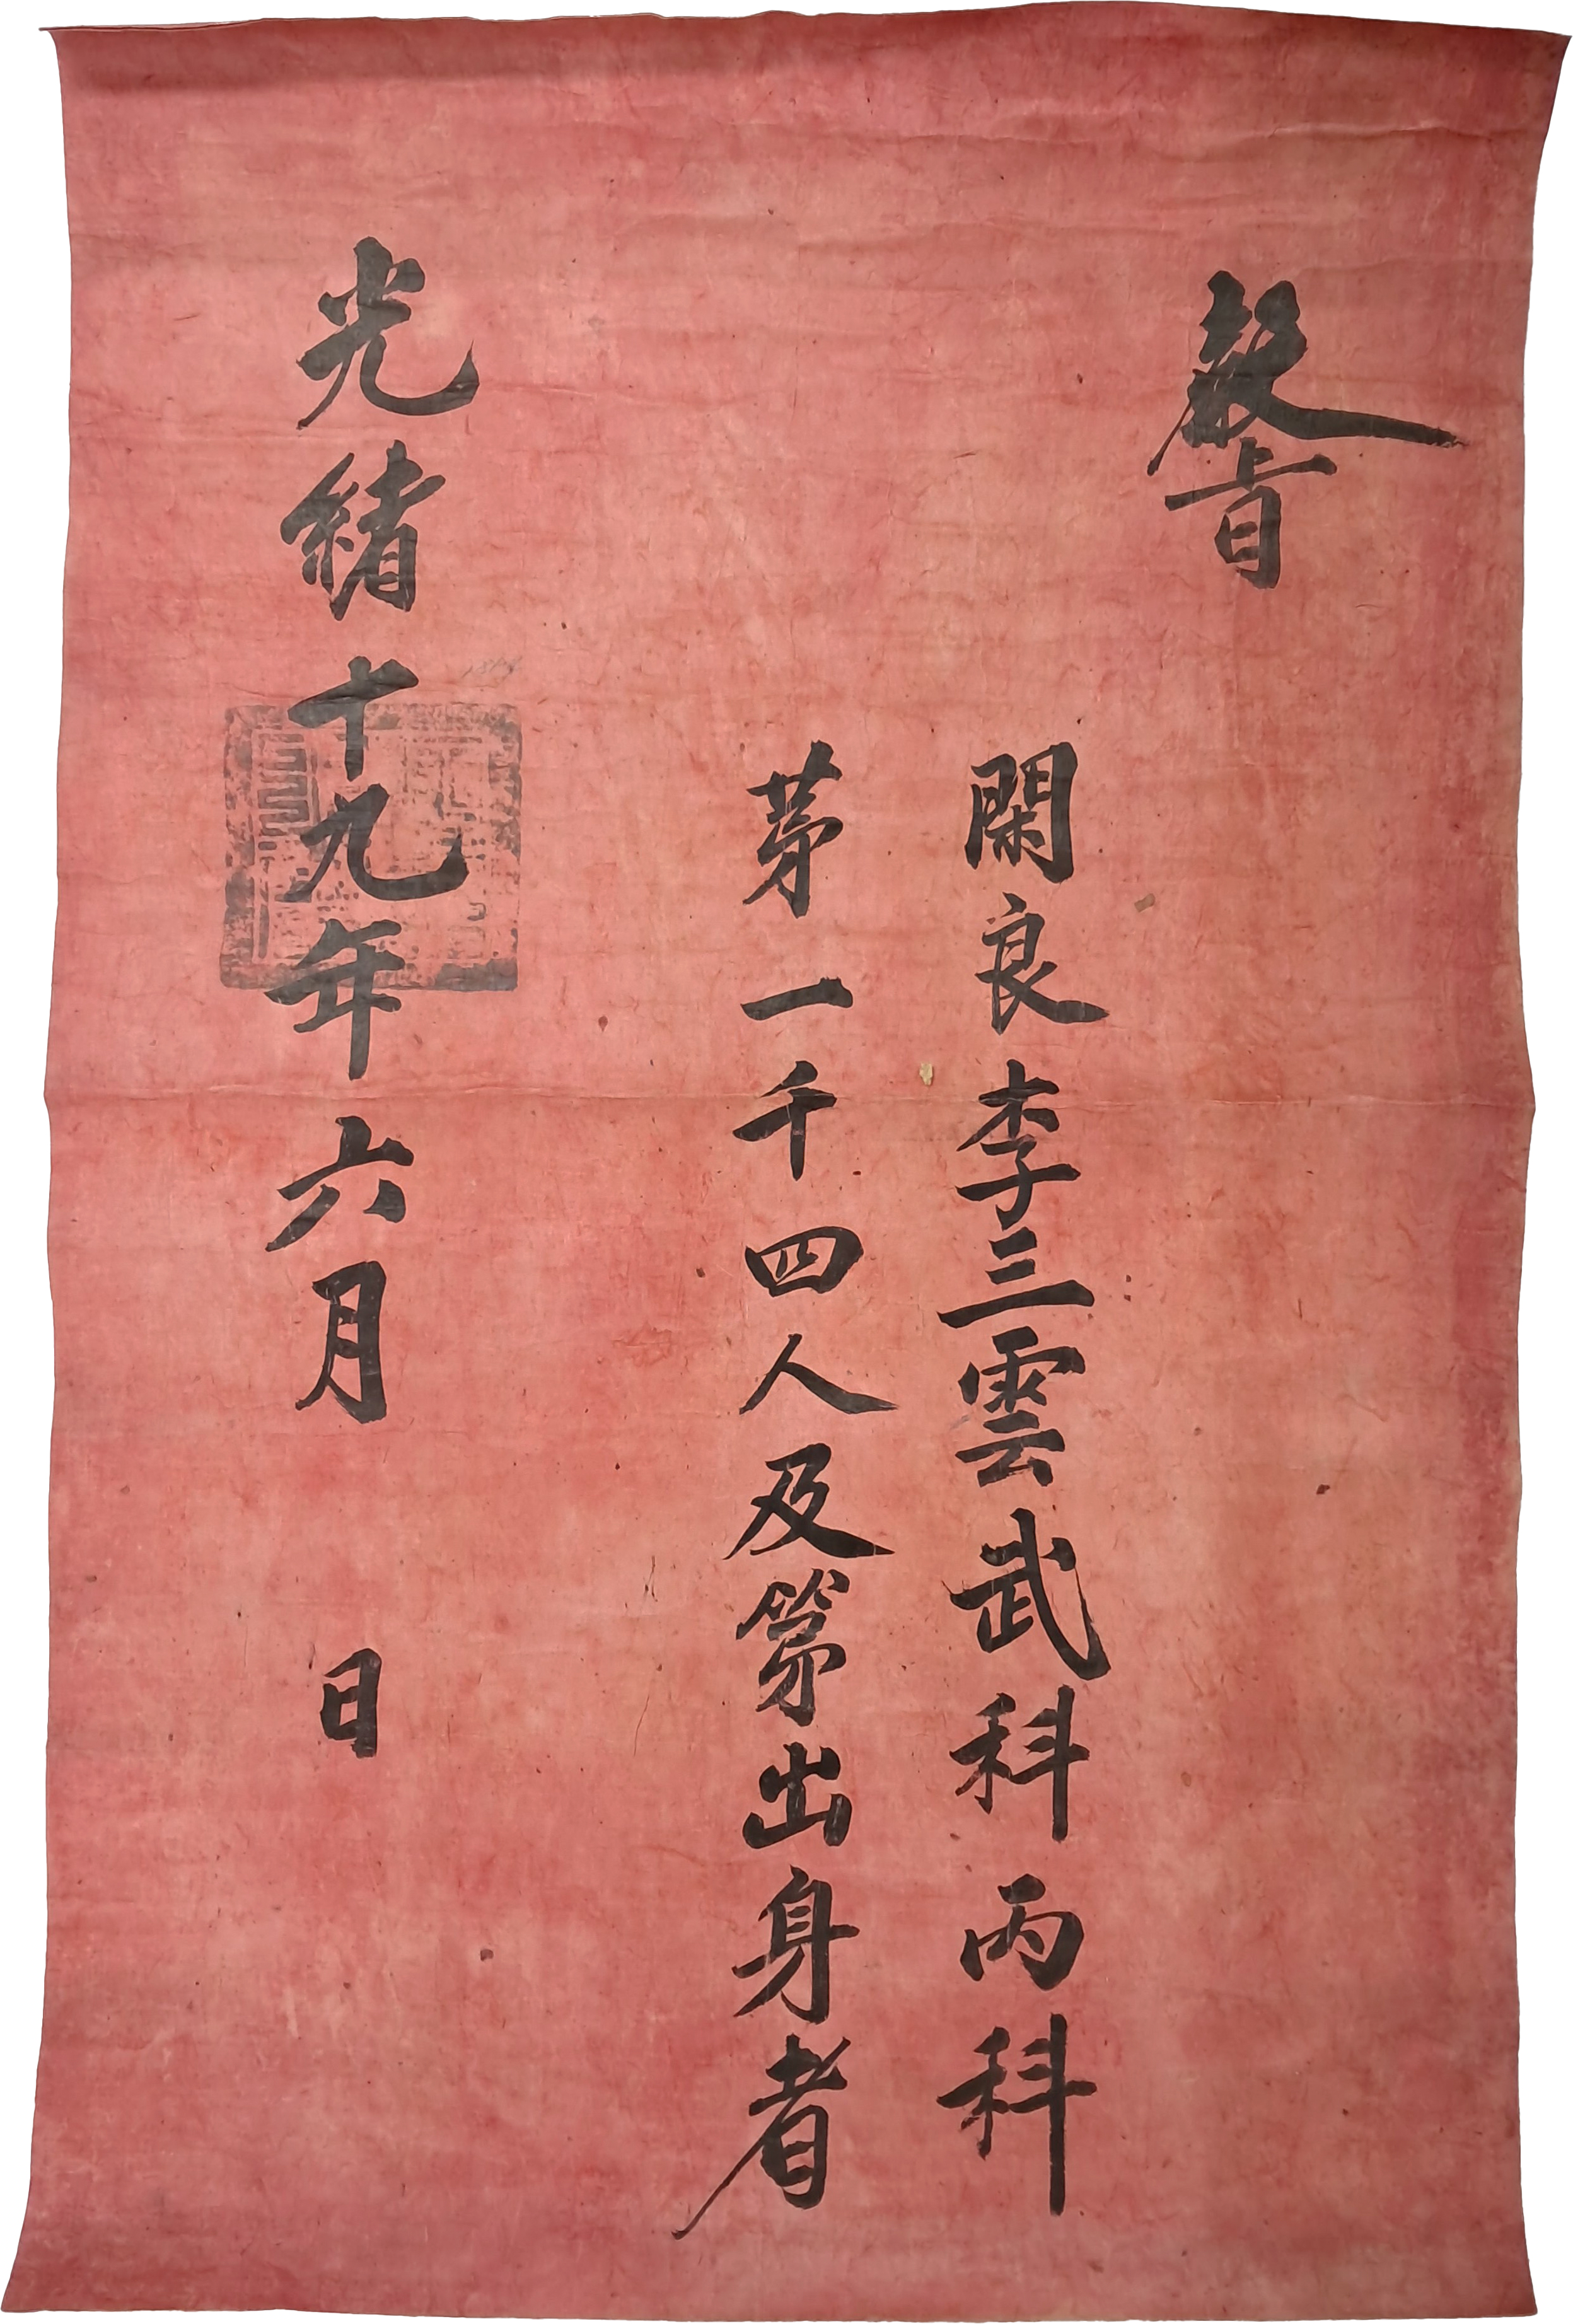 敎旨
閑良李三雲武科丙科
苐一千四人及第出身者
光緖十九年六月 日